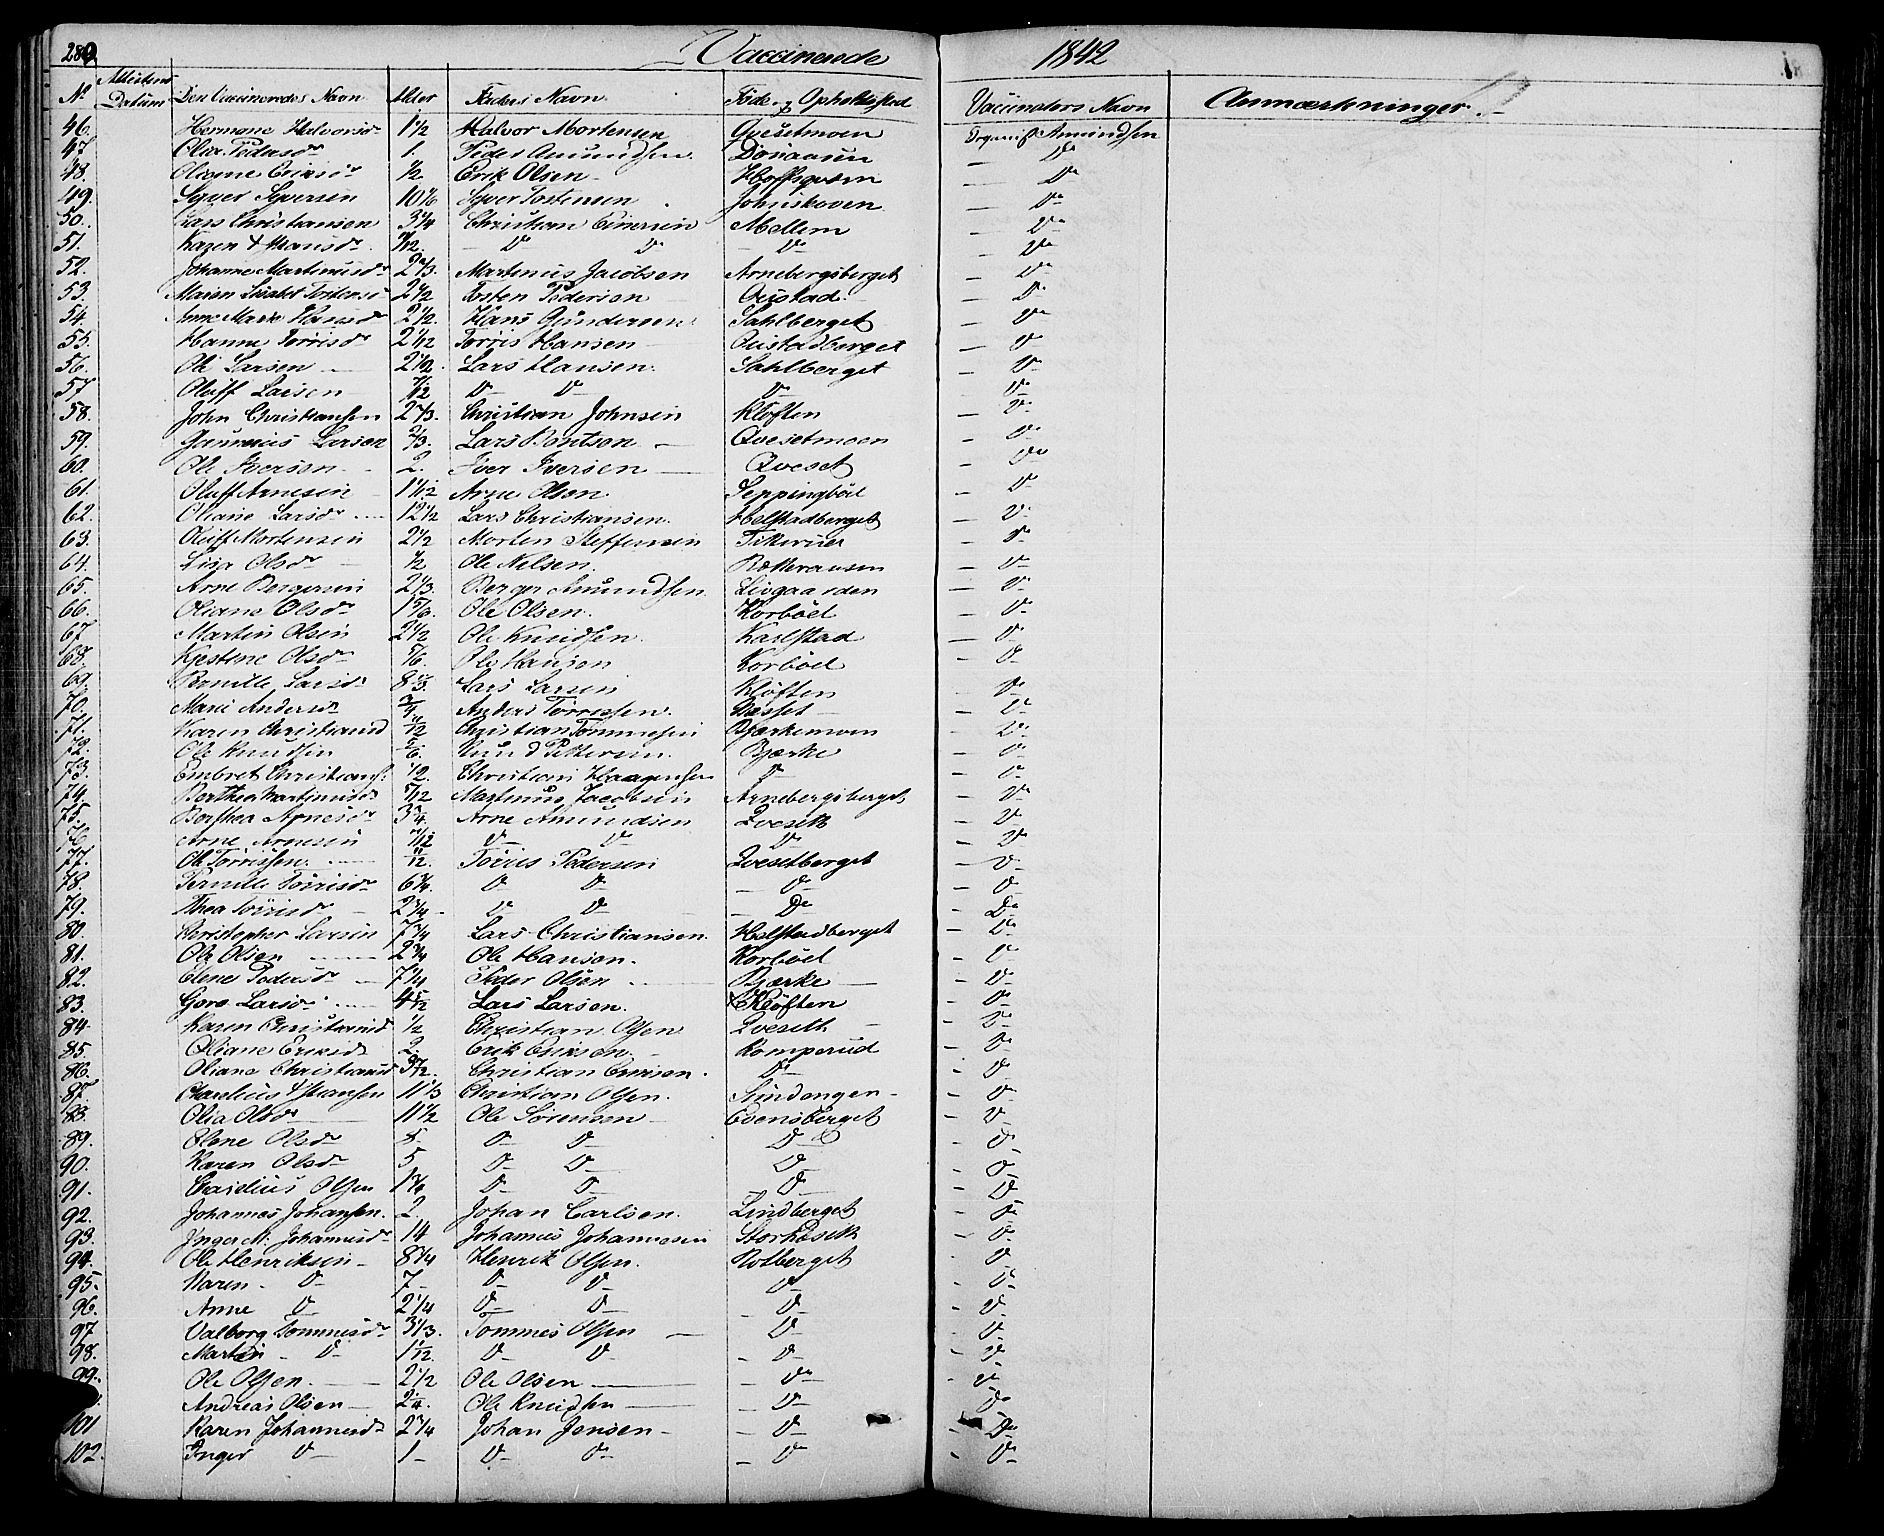 Vaccinerede 1842
No Attestens Datum Den Vaccineredes Navn Alder Faders Navn Føde- og Opholdssted Vaccinators Navn Anmærkninger.
46. Hermane Halvorsdr 1½ Halvor Mortensen Qvesetmoen Organist Amundsen
47. Olia Pedersdr 1. Peder Amundsen Do
48. Oliane Eriksdr ½ Erik Olsen Hoffsqværn Do
49. Syver Syversen 10 1/6 Syver Tostensen Do
50. Lars Christiansen 3¼ Christian Einersen Mellem Do
51. Karen Do Do Do Do
52. Johanne Martinusdr 2⅔ Martinus Jacobsen Arnebergsberget Do
53. Maren Lisabet Tostensd 2½ Tosten Pedersen Oustad Do
54. Anne Marie Hansdr 2½ Hans Gundersen Sahlberget Do
55. Hanne Torrisdr 2 1/12 Torris Hansen Oustadberget Do
56. Ole Larsen 2½ Lars Hansen Sahlberget Do
57. Oluff Larsen 7/12 Do Do Do Do
58. John Christiansen 2⅔ Christian Johnsen Kløften Do
59. Gunerius Larsen ⅔ Lars Bentsen Qvesetmoen Do
60. Ole Iversen 2. Iver Iversen Qveset Do
61. Oluff Arnesen 1 11/12 Arne Olsen Seppingböel Do
62. Oliane Larsdr 12½ Lars Christiansen Helstadberget Do
63. Oluff Mortensen 2½ Morten Steffensen Do
64. Lisa Olsdr ½ Ole Nelsen Do
65. Arne Bergersen 2⅓ Berger Amundsen Livgaarden Do
66. Oliane Olsdr 1 5/6 Ole Olsen Korböel Do
67. Martin Olsen 2½ Ole Knudsen Karlstad Do
68. Kjestine Olsdr 5/6 Ole Hansen Korböel Do
69. Pernille Larsdr 8⅓ Lars Larsen Kløften Do
70. Marie Andersdr ¾ Anders Torrissen Do
71. Karen Christiansd Christian Tommesen Bjerkemoen Do
72. Ole Knudsen Knud Pettersen Bjerke Do
73. Embret Christians. ½ Christian Haagensen Do Do
74. Berthea Martinusdr 5/12 Martinus Jacobsen Arnebergsberget Do
75. Berthea Arnesdr 3¾ Arne Amundsen Qveseth Do
76. Arne Arnesen Do Do Do Do
77. Ole Torrissen Torris Pedersen Qvesetberget Do
78. Pernille Torrisdr 6¾ Do Do Do Do
79. Thea Torrisdr 2¾ Do Do Do Do
80. Christopher Larsen 7¾ Lars Christiansen Helstadberget Do
81. Ole Olsen 2¾ Ole Hansen Korböel Do
82. Elene Pedersdr 7¼ Peder Olsen Bjerke Do
83. Goro Larsdr 4 5/12 Lars Larsen Kløften Do
84. Karen Christiansd ½ Christian Olsen Qveseth Do
85. Oliane Eriksd 2. Erik Eriksen Komperud Do
86. Oliane Christiansd Christian Do Do
87. 11⅓ Christian Olsen Sundengen Do
88. Olia Olsdr 11½ Ole Sørensen Evensberget Do
89. Elene Olsdr 8 Do Do Do Do
90. Karen Olsdr 5 Do Do Do Do
91. Olsen 1¾ Do Do Do Do
92. Johannes Johansen. 2. Johan Carlsen. Lindberget Do
93. Inger M: Johannesdr 14 Johannes Johannesen Do
94. Ole Henriksen 8¼ Henrik Olsen. Rotberget Do
95. Karen Do 7 Do Do Do Do
96. Anne Do 2¼ Do Do Do Do
97. Valborg Tommesdr 3⅓. Tommes Olsen Do Do
98. Martin Do 1 1/12 Do Do Do Do
99. Ole Olsen 2½ Ole Olsen Do Do
Andreas Olsen Ole Knudsen Do Do
101 Karen Johannesdr 2¼ Johan Jensen Do Do
102. Inger Do 1 Do Do Do Do